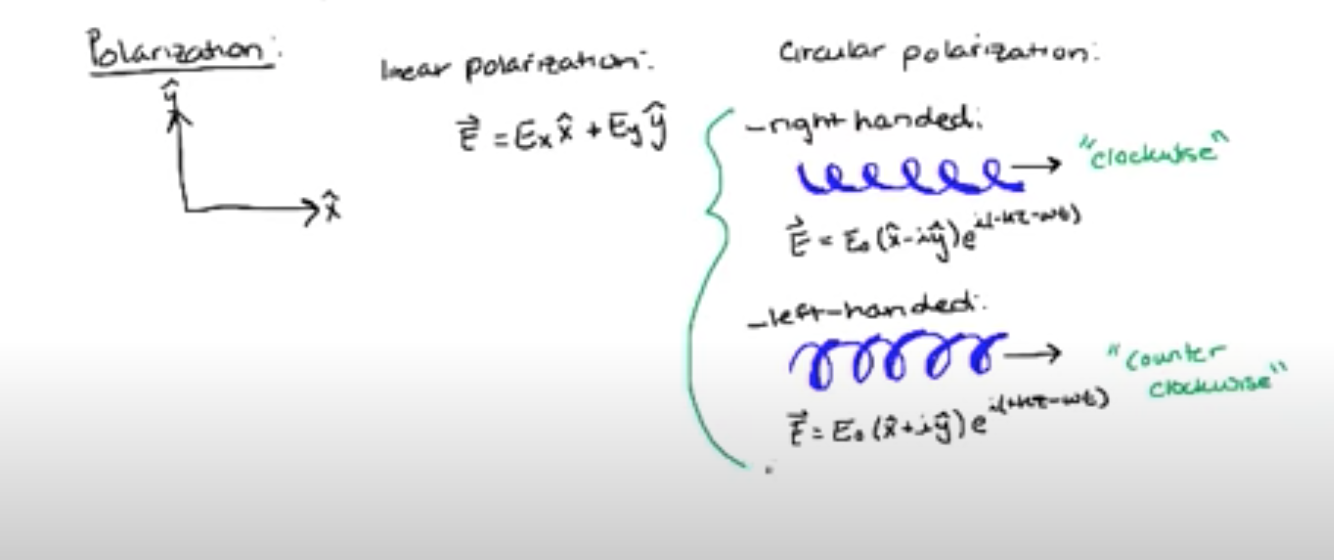 Polarization:
ŷ
x̂
linear polarization:
E⃗ = Eₓx̂ + Eyŷ
Circular polarization:
-right handed:
"clockwise"
E⃗ = E₀(x̂-iŷ)e^i(-kz-ωt)
-left-handed:
"counter
clockwise"
E⃗ = E₀(x̂+iŷ)e^i(+kz-ωt)